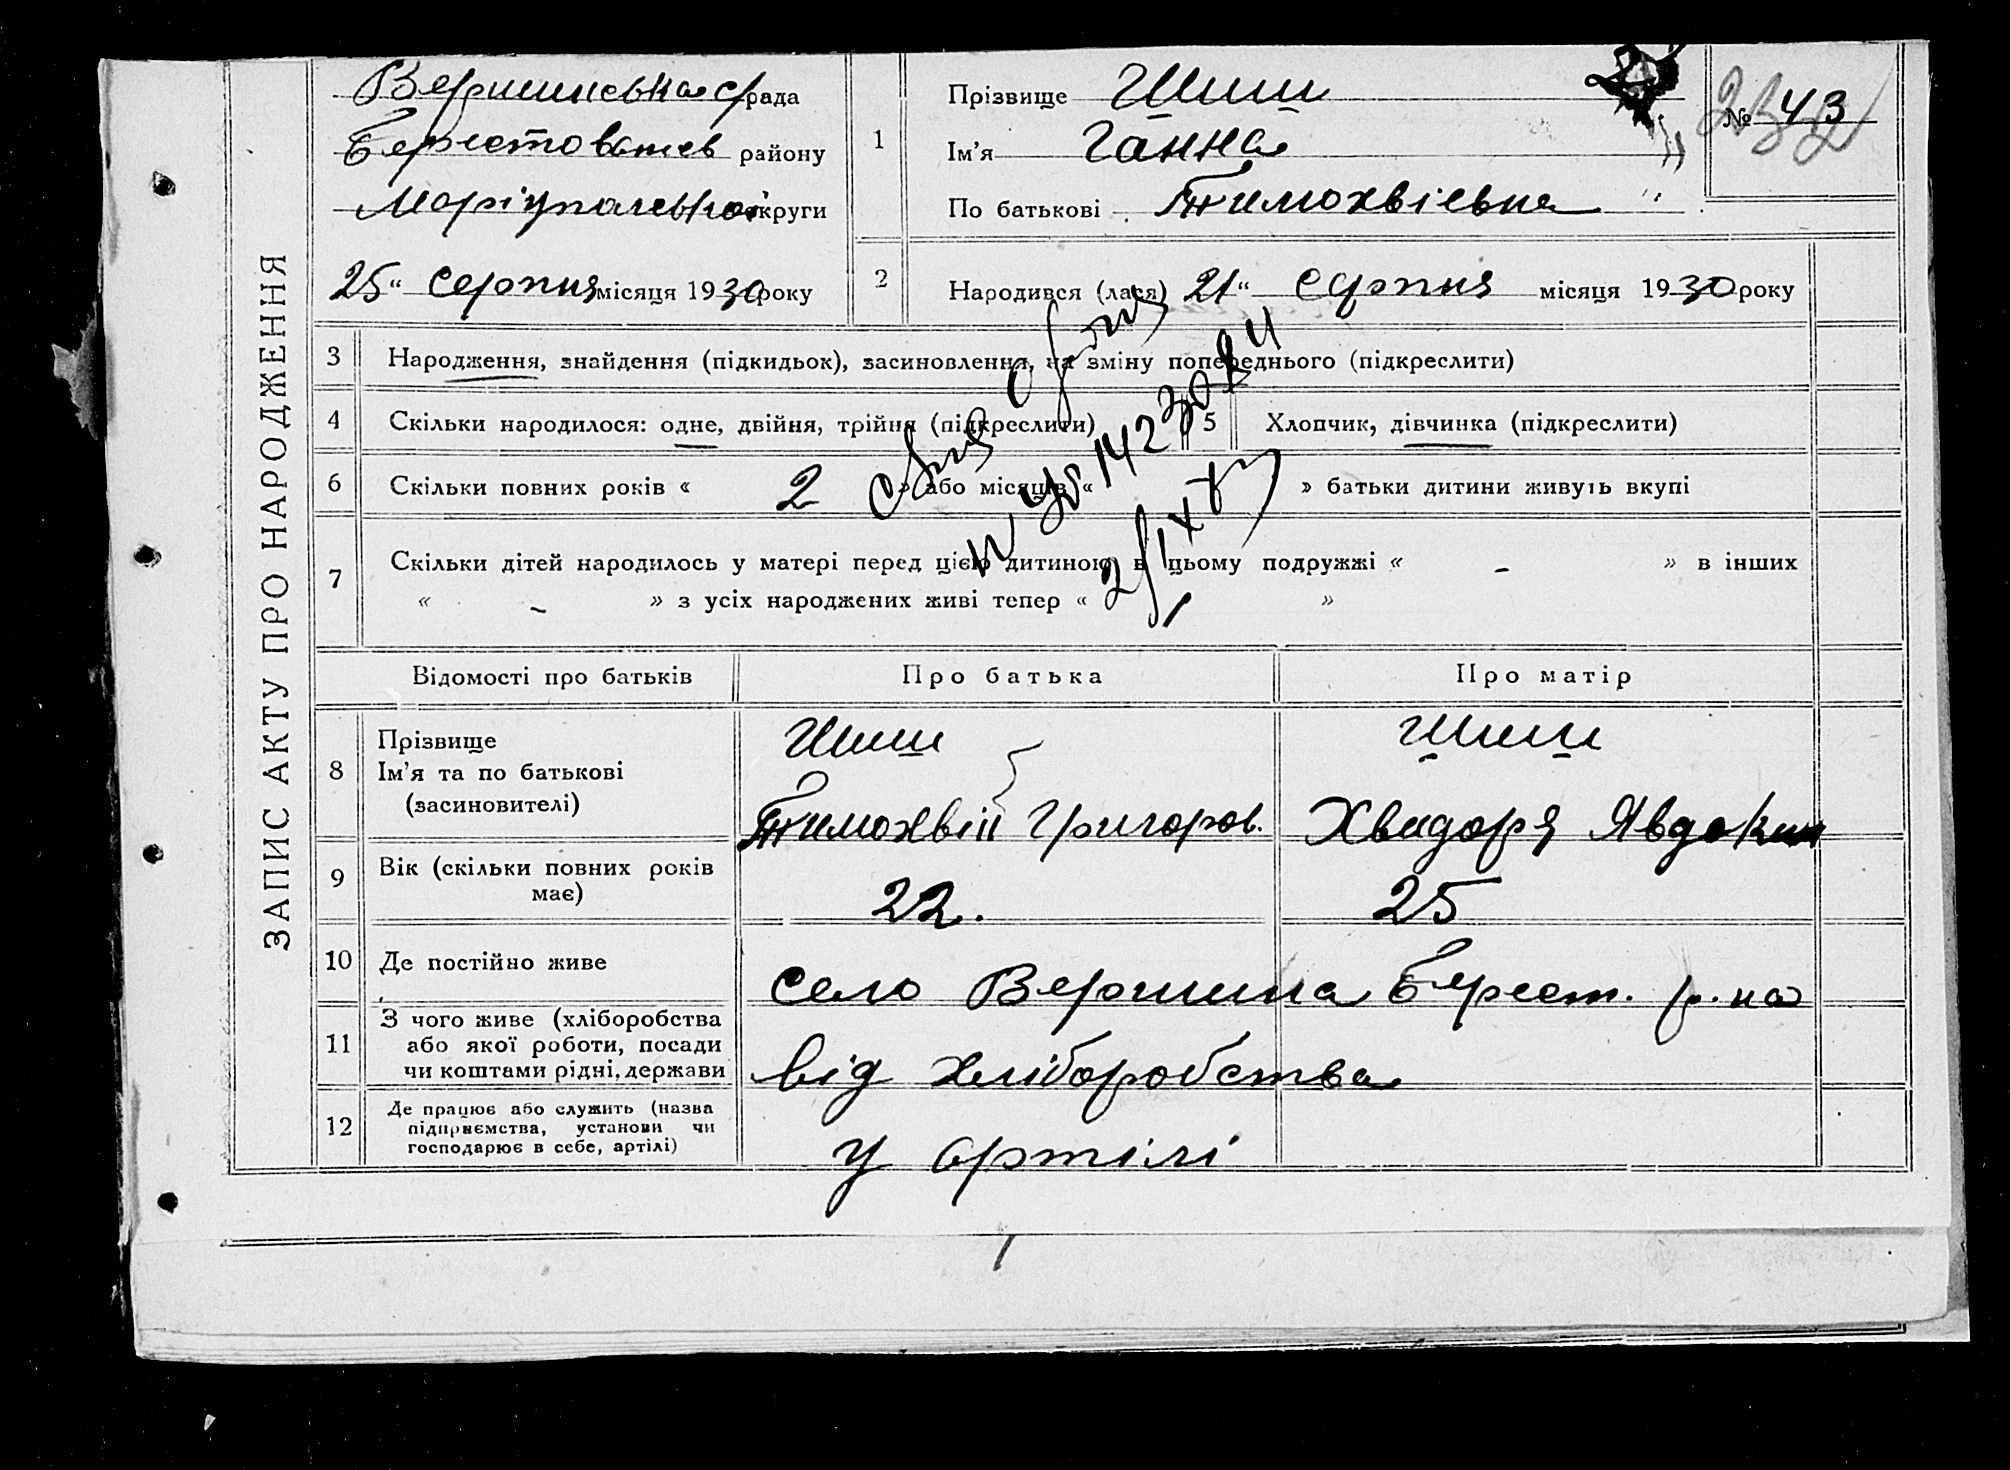 ЗАПИС АКТУ ПРО НАРОДЖЕННЯ
Вершинська с/рада
Берестоватськ району
Маріупольської округи
25 " серпня місяця 1930 року
1
Прізвище Шиш
Ім'я Ганна
По батькові Тимохвієвна
№ 43
232
2
Народився (лася) 21 " серпня місяця 1930 року
3 Народження, знайдення (підкидьок), засиновлення, на зміну попереднього (підкреслити)
4 Скільки народилося: одне, двійня, трійня (підкреслити)
5 Хлопчик, дівчинка (підкреслити)
6 Скільки повних років « 2 » або місяців « » батьки дитини живуть вкупі
7 Скільки дітей народилось у матері перед цією дитиною в цьому подружжі « - » в інших
« - » з усіх народжених живі тепер « »
Відомості про батьків
Про батька
Про матір
8 Прізвище
Ім'я та по батькові
(засиновителі)
Шиш
Тимохвій Григоров.
Шиш
Хвидоря Явдоким
9 Вік (скільки повних років
має)
22.
25
10 Де постійно живе
село Вершина Берест. р-на
11 З чого живе (хліборобства
або якої роботи, посади
чи коштами рідні, держави
від хліборобства
12 Де працює або служить (назва
підприємства, установи чи
господарює в себе, артілі)
у артілі